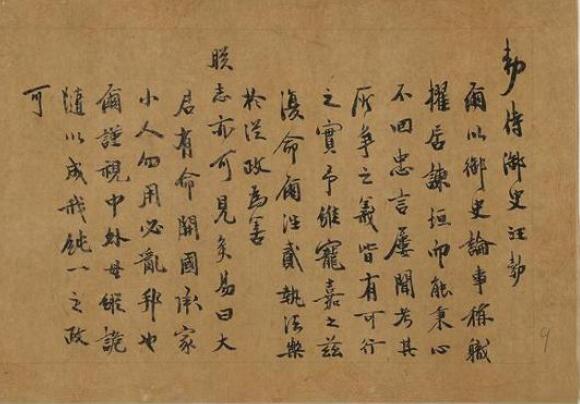 勅侍御史汪勃
爾以御史論事稱職
擢居諫垣而能秉心
不回忠言屢聞考其
所爭之義皆有可行
之實予維寵嘉之茲
復命爾往貳執法樂
於從政為害
朕志亦可見矣易曰大
君有命開國承家
小人勿用必亂邦也
爾謹視中外毋縱詭
隨以成我純一之政
可
9